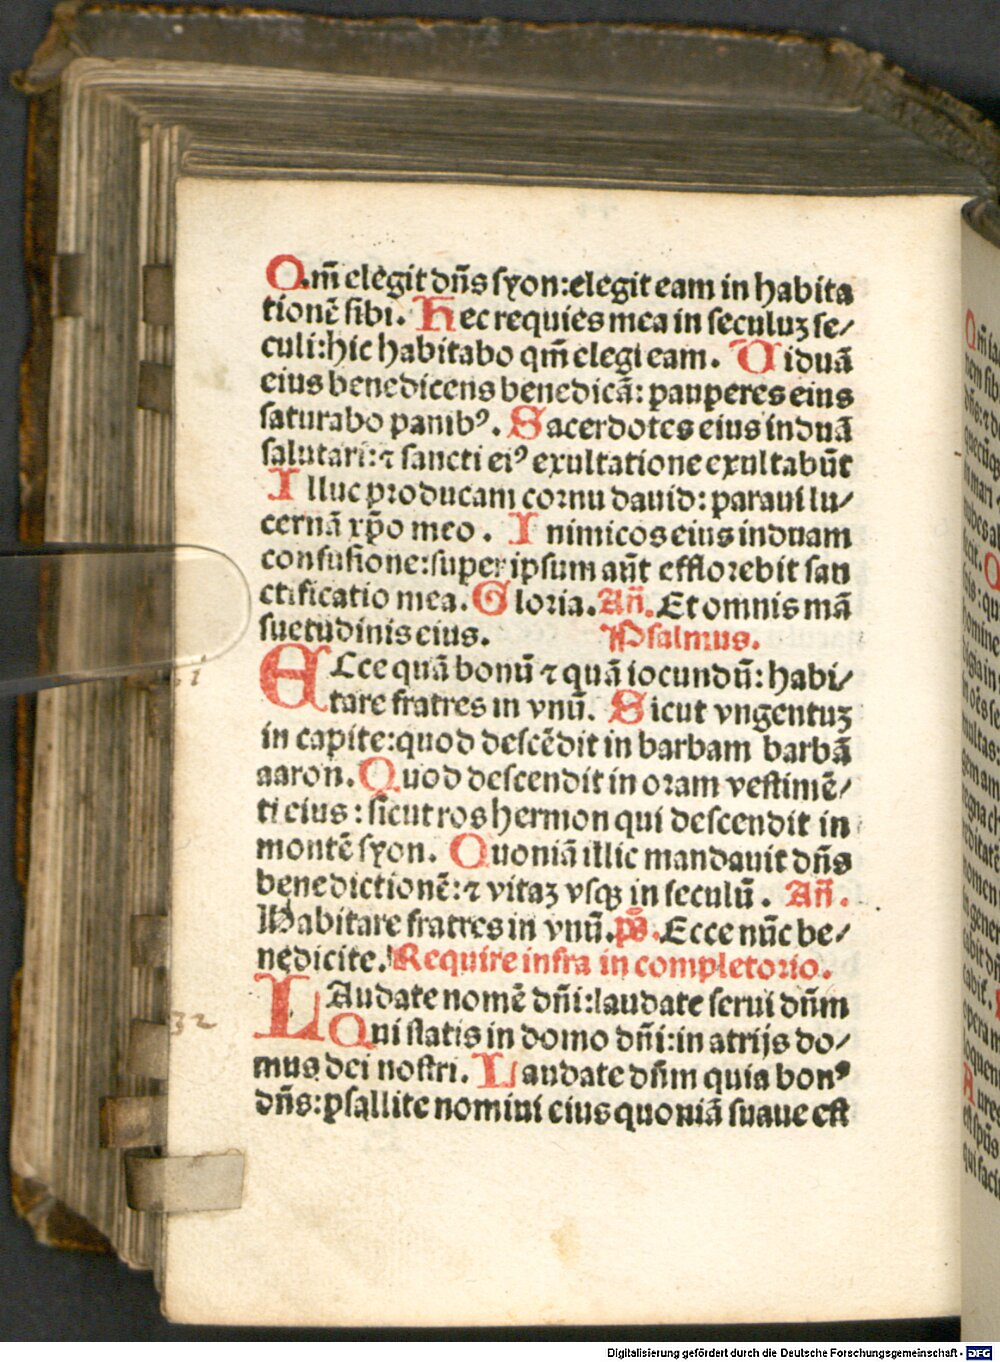 Qm̄ elegit dn̄s syon: elegit eam in habita
tionē sibi. Hec requies mea in seculuꝫ se/
culi: hic habitabo qm̄ elegi eam. Uiduā
eius benedicens benedicā: pauperes eius
saturabo panibꝰ. Sacerdotes eius induā
salutari: ⁊ sancti eiꝰ exultatione exultabūt
Illuc producam cornu dauid: paraui lu/
cernā xp̄o meo. Inimicos eius induam
confusione: super ipsum aūt efflorebit san
ctificatio mea. Gloria. Añ. Et omnis mā
suetudinis eius. Psalmus.
ECce quā bonū ⁊ quā iocundū: habi/
tare fratres in vnū. Sicut vngentuꝫ
in capite: quod descēdit in barbam barbā
aaron. Quod descendit in oram vestimē/
ti eius: sicut ros hermon qui descendit in
montē syon. Quoniā illic mandauit dn̄s
benedictionē: ⁊ vitaꝫ vsqꝫ in seculū. Añ.
Habitare fratres in vnū. ps̄. Ecce nūc be/
nedicite. Require infra in completorio.
32
LAudate nomē dn̄i: laudate serui dn̄m
Qui statis in domo dn̄i: in atrijs do/
mus dei nostri. Laudate dn̄m quia bonꝰ
dn̄s: psallite nomini eius quoniā suaue est
Digitalisierung gefördert durch die Deutsche Forschungsgemeinschaft - DFG